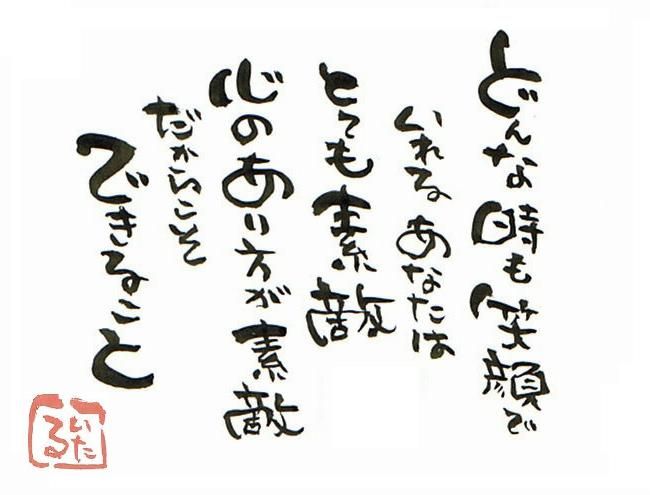 どんな時も笑顔で
いれるあなたは
とても素敵
心のあり方が素敵
だからこそ
できること
いたる